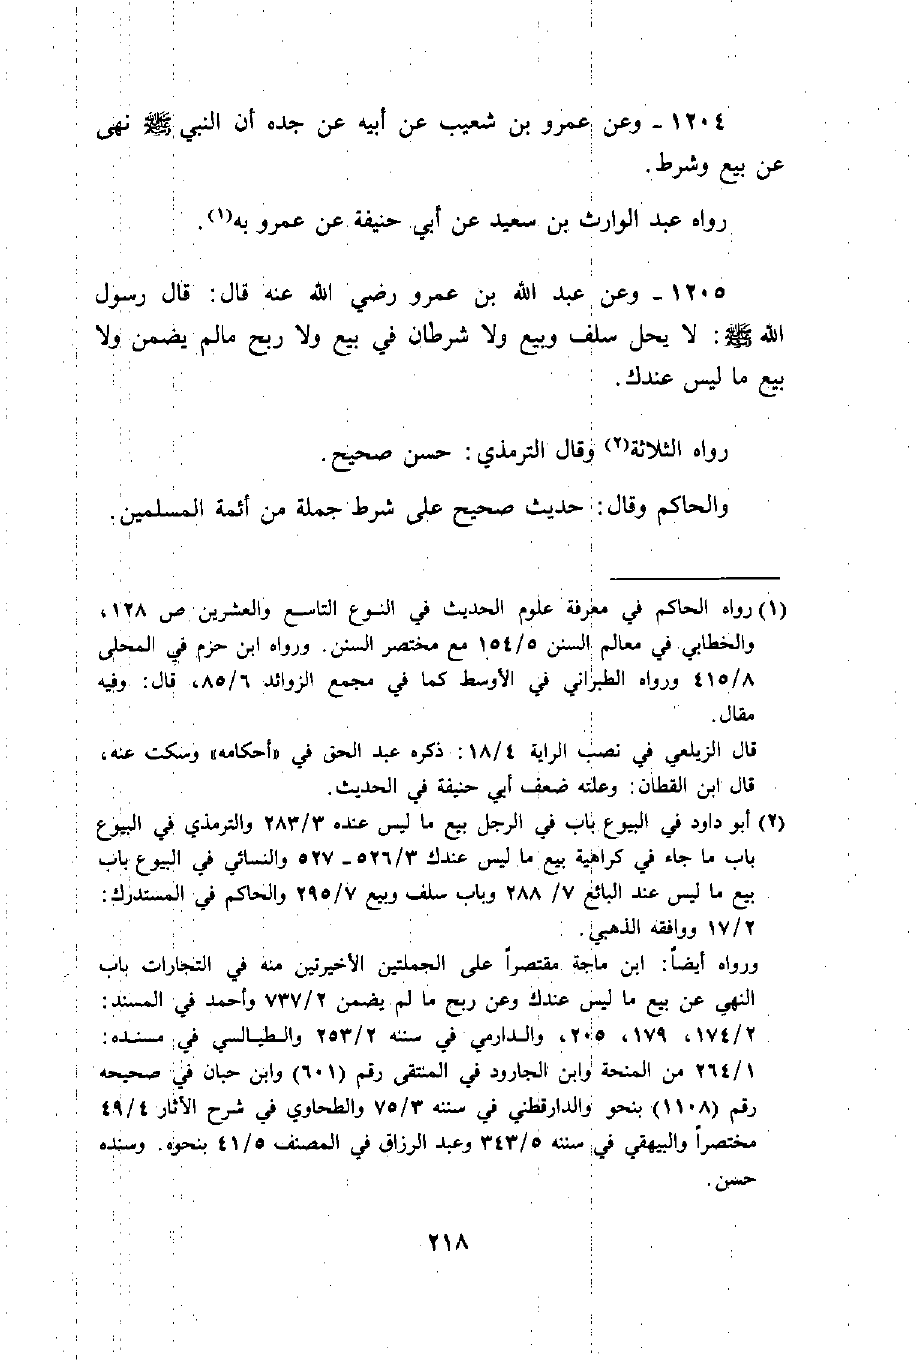 ١٢٠٤ ـ وعن عمرو بن شعيب عن أبيه عن جده أن النبي ﷺ نهى
عن بيع وشرط.
رواه عبد الوارث بن سعيد عن أبي حنيفة عن عمرو به(١).
١٢٠٥ ـ وعن عبد الله بن عمرو رضي الله عنه قال: قال رسول
الله ﷺ: لا يحل سلف وبيع ولا شرطان في بيع ولا ربح مالم يضمن ولا
بيع ما ليس عندك.
رواه الثلاثة(٢) وقال الترمذي: حسن صحيح.
والحاكم وقال: حديث صحيح على شرط جملة من أئمة المسلمين.
(١) رواه الحاكم في معرفة علوم الحديث في النوع التاسع والعشرين ص ١٢٨،
والخطابي في معالم السنن ١٥٤/٥ مع مختصر السنن. ورواه ابن حزم في المحلى
٤١٥/٨ ورواه الطبراني في الأوسط كما في مجمع الزوائد ٨٥/٦، قال: وفيه
مقال.
قال الزيلعي في نصب الراية ١٨/٤: ذكره عبد الحق في «أحكامه» وسكت عنه،
قال ابن القطان: وعلته ضعف أبي حنيفة في الحديث.
(٢) أبو داود في البيوع باب في الرجل بيع ما ليس عنده ٢٨٣/٣ والترمذي في البيوع
باب ما جاء في كراهية بيع ما ليس عندك ٥٢٦/٣ ـ ٥٢٧ والنسائي في البيوع باب
بيع ما ليس عند البائع ٧/ ٢٨٨ وباب سلف وبيع ٢٩٥/٧ والحاكم في المستدرك:
١٧/٢ ووافقه الذهبي.
ورواه أيضاً: ابن ماجة مقتصراً على الجملتين الأخيرتين منه في التجارات باب
النهي عن بيع ما ليس عندك وعن ربح ما لم يضمن ٧٣٧/٢ وأحمد في المسند:
١٧٤/٢، ١٧٩، ٢٠٥، والدارمي في سننه ٢٥٣/٢ والطيالسي في مسنده:
٢٦٤/١ من المنحة وابن الجارود في المنتقى رقم (٦٠١) وابن حبان في صحيحه
رقم (١١٠٨) بنحو والدارقطني في سننه ٧٥/٣ والطحاوي في شرح الأثار ٤٩/٤
مختصراً والبيهقي في سننه ٣٤٣/٥ وعبد الرزاق في المصنف ٤١/٥ بنحوه. وسنده
حسن.
٢١٨